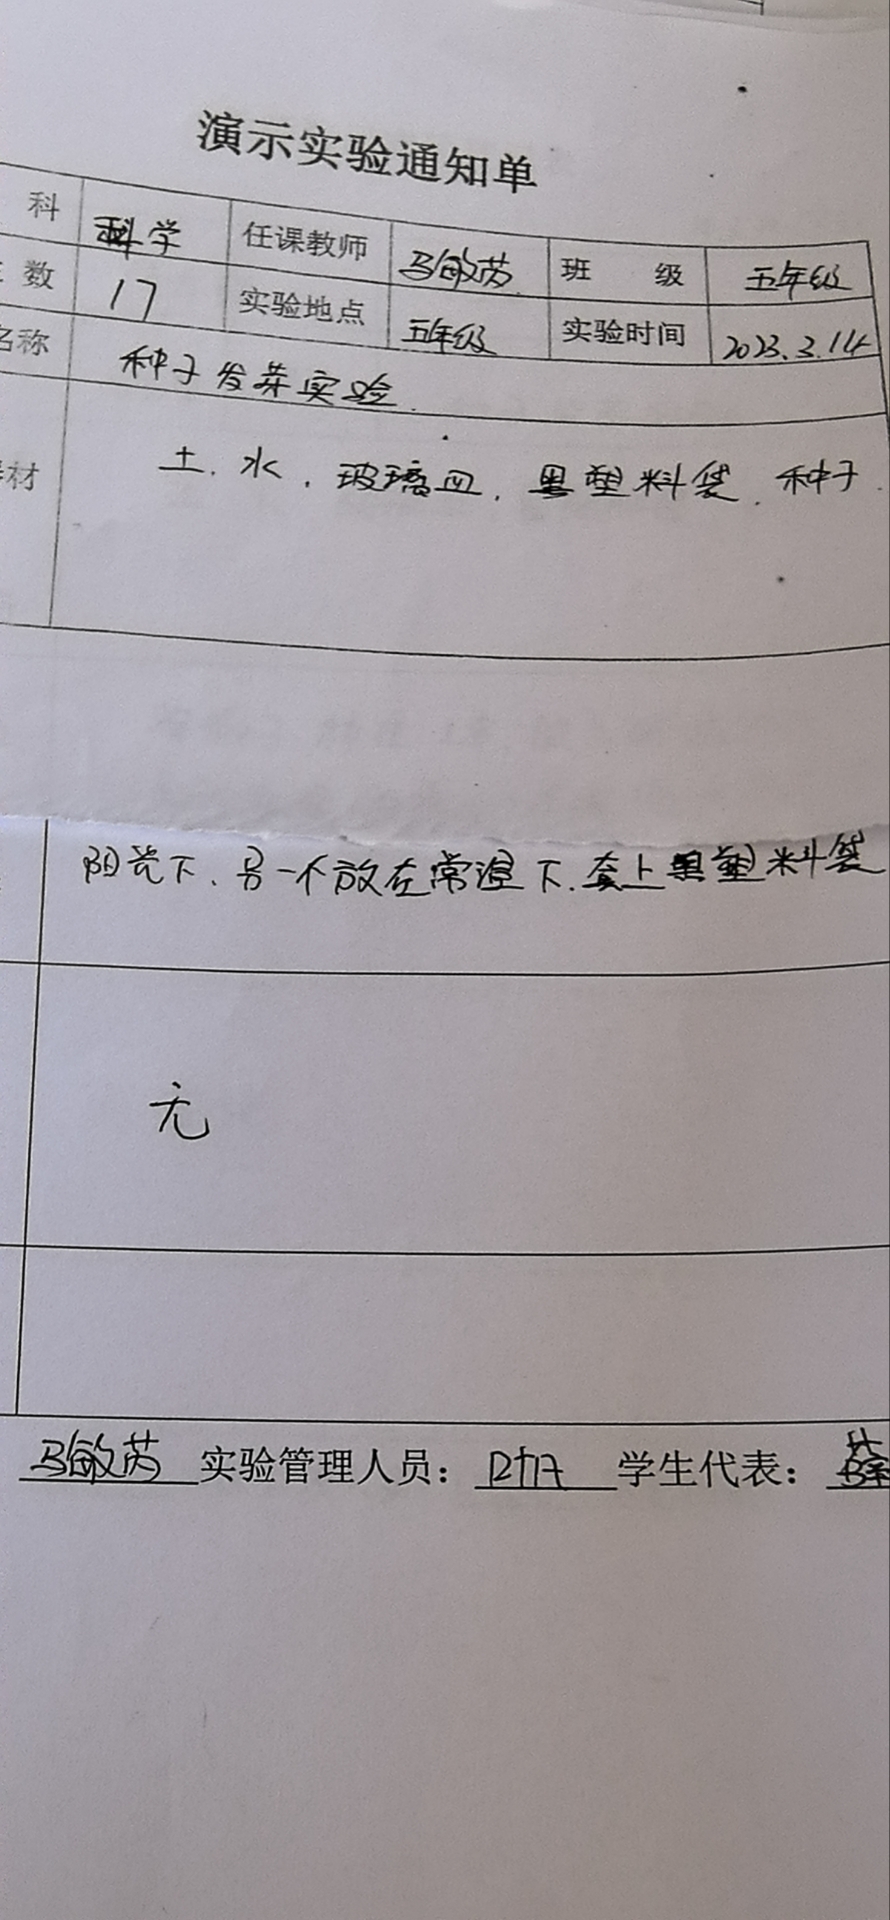 演示实验通知单
科 科学 任课教师 马敏芮 班 级 五年级
数 17 实验地点 五年级 实验时间 2023.3.14
名称 种子发芽实验.
材 土. 水. 玻璃皿. 黑塑料袋. 种子.
阳光下. 另一个放在常温下. 套上黑塑料袋
无
马敏芮 实验管理人员: 学生代表: